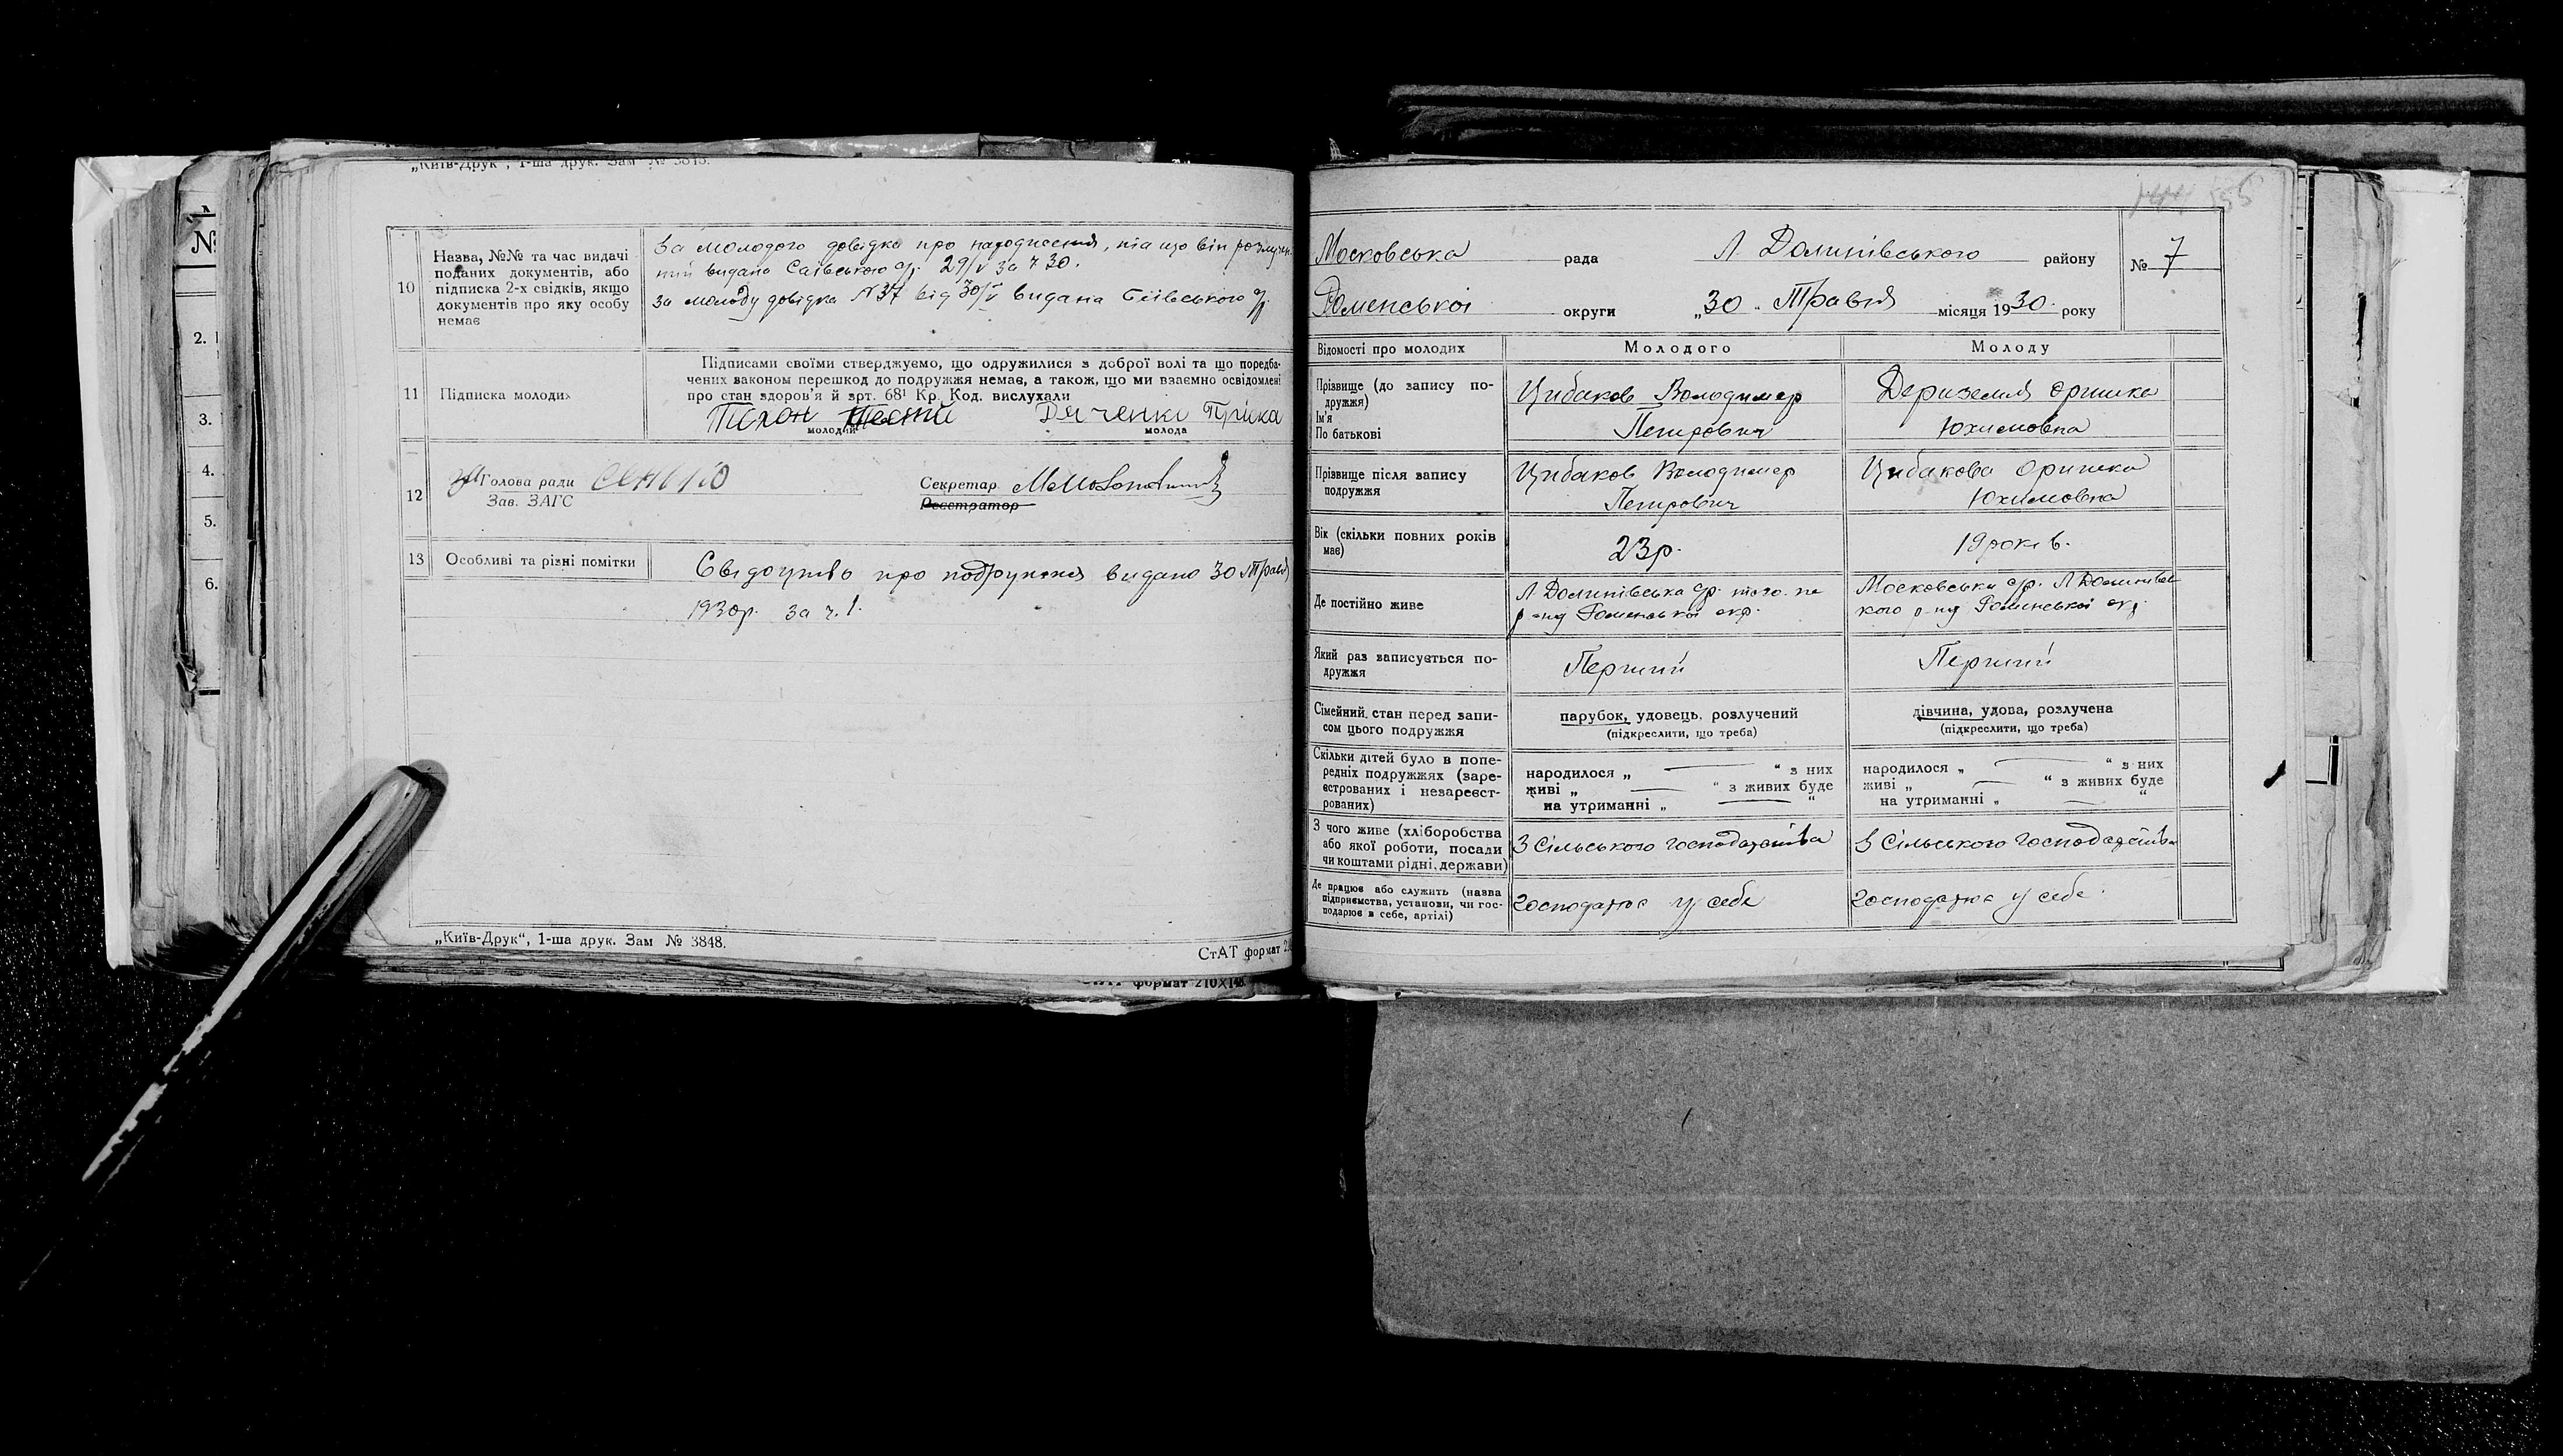 „Київ-Друк“, 1-ша друк. Зам № 3848.
10
Назва, №№ та час видачі
поданих документів, або
підписка 2-х свідків, якщо
документів про яку особу
немає
За молодого довідка про народження, та що він розлучен-
ний видано 29/V за ч 30.
за молоду довідка N 37 від 30/V видана
11
Підписка молоди
Підписами своїми стверджуємо, що одружилися з доброї волі та що передба-
чених законом перешкод до подружжя немає, а також, що ми взаємно освідомлені
про стан здоров'я й арт. 68¹ Кр. Код. вислухали
Тихон Дяченко
молодий молода
12
Голова ради
Зав. ЗАГС
Секретар
Реєстратор
13
Особливі та різні помітки
Свідоцтво про подружжя видано 30 Травня
1930р. за ч. 1.
„Київ-Друк“, 1-ша друк. Зам № 3848.
СтАТ формат 210
формат 210X148
№
2.
3.
4.
5.
6.
Московська рада Л Долинівського району
№ 7
Роменської округи „30 „ Травня місяця 1930 року
Відомості про молодих
Молодого
Молоду
Прізвище (до запису по-
дружжя)
Ім'я
По батькові
Цибаков Володимер
Петрович
Дериземля Оришка
Юхимовна
Прізвище після запису
подружжя
Цибаков Володимер
Петрович
Цибакова Оришка
Юхимовна
Вік (скільки повних років
має)
23р.
19 років.
Де постійно живе
Л Долинівська с/р.
р-ну Роменської окр.
Московська с/р. Л Долинівсь
кого р-ну Роменської окр.
Який раз записується по-
дружжя
Перший
Перший
Сімейний стан перед запи-
сом цього подружжя
парубок, удовець, розлучений
(підкреслити, що треба)
дівчина, удова, розлучена
(підкреслити, що треба)
Скільки дітей було в попе-
редніх подружжях (заре-
єстрованих і незареєст-
рованих)
народилося „ “ з них
живі „ “ з живих буде
на утриманні „ “
народилося „ “ з них
живі „ “ з живих буде
на утриманні „ “
З чого живе (хліборобства
або якої роботи, посади
чи коштами рідні, держави)
З Сільського господарства
З Сільського господарства
Де працює або служить (назва
підприємства, установи, чи гос-
подарює в себе, артілі)
господарює у себе
господарює у себе